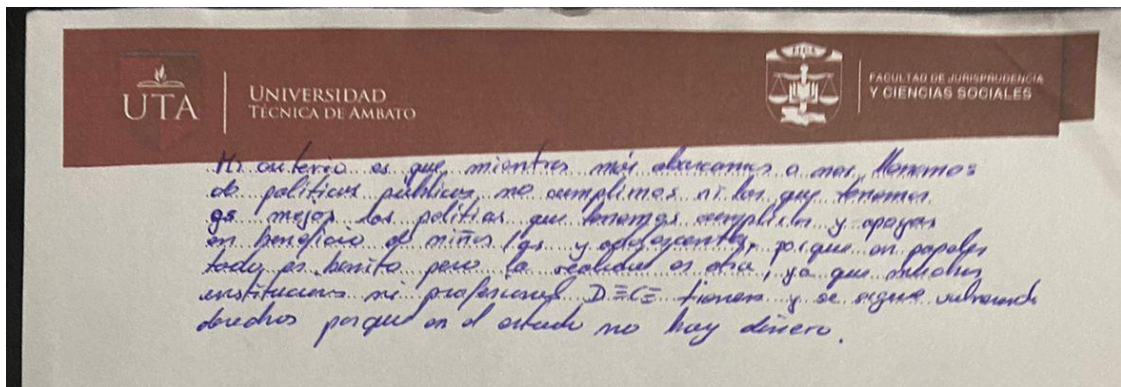 UTA
UNIVERSIDAD
TÉCNICA DE AMBATO
FCJS
FACULTAD DE JURISPRUDENCIA
Y CIENCIAS SOCIALES
Mi criterio es que mientras más abarcamos o nos llenamos
de políticas públicas no cumplimos ni las que tenemos
es mejor las políticas que tenemos cumplirlas y apoyar
en beneficio de niños/as y adolescentes, porque en papeles
todo es bonito pero la realidad es otra, ya que muchas
instituciones ni profesional DECE tienen y se sigue vulnerando
derechos porque en el estado no hay dinero.